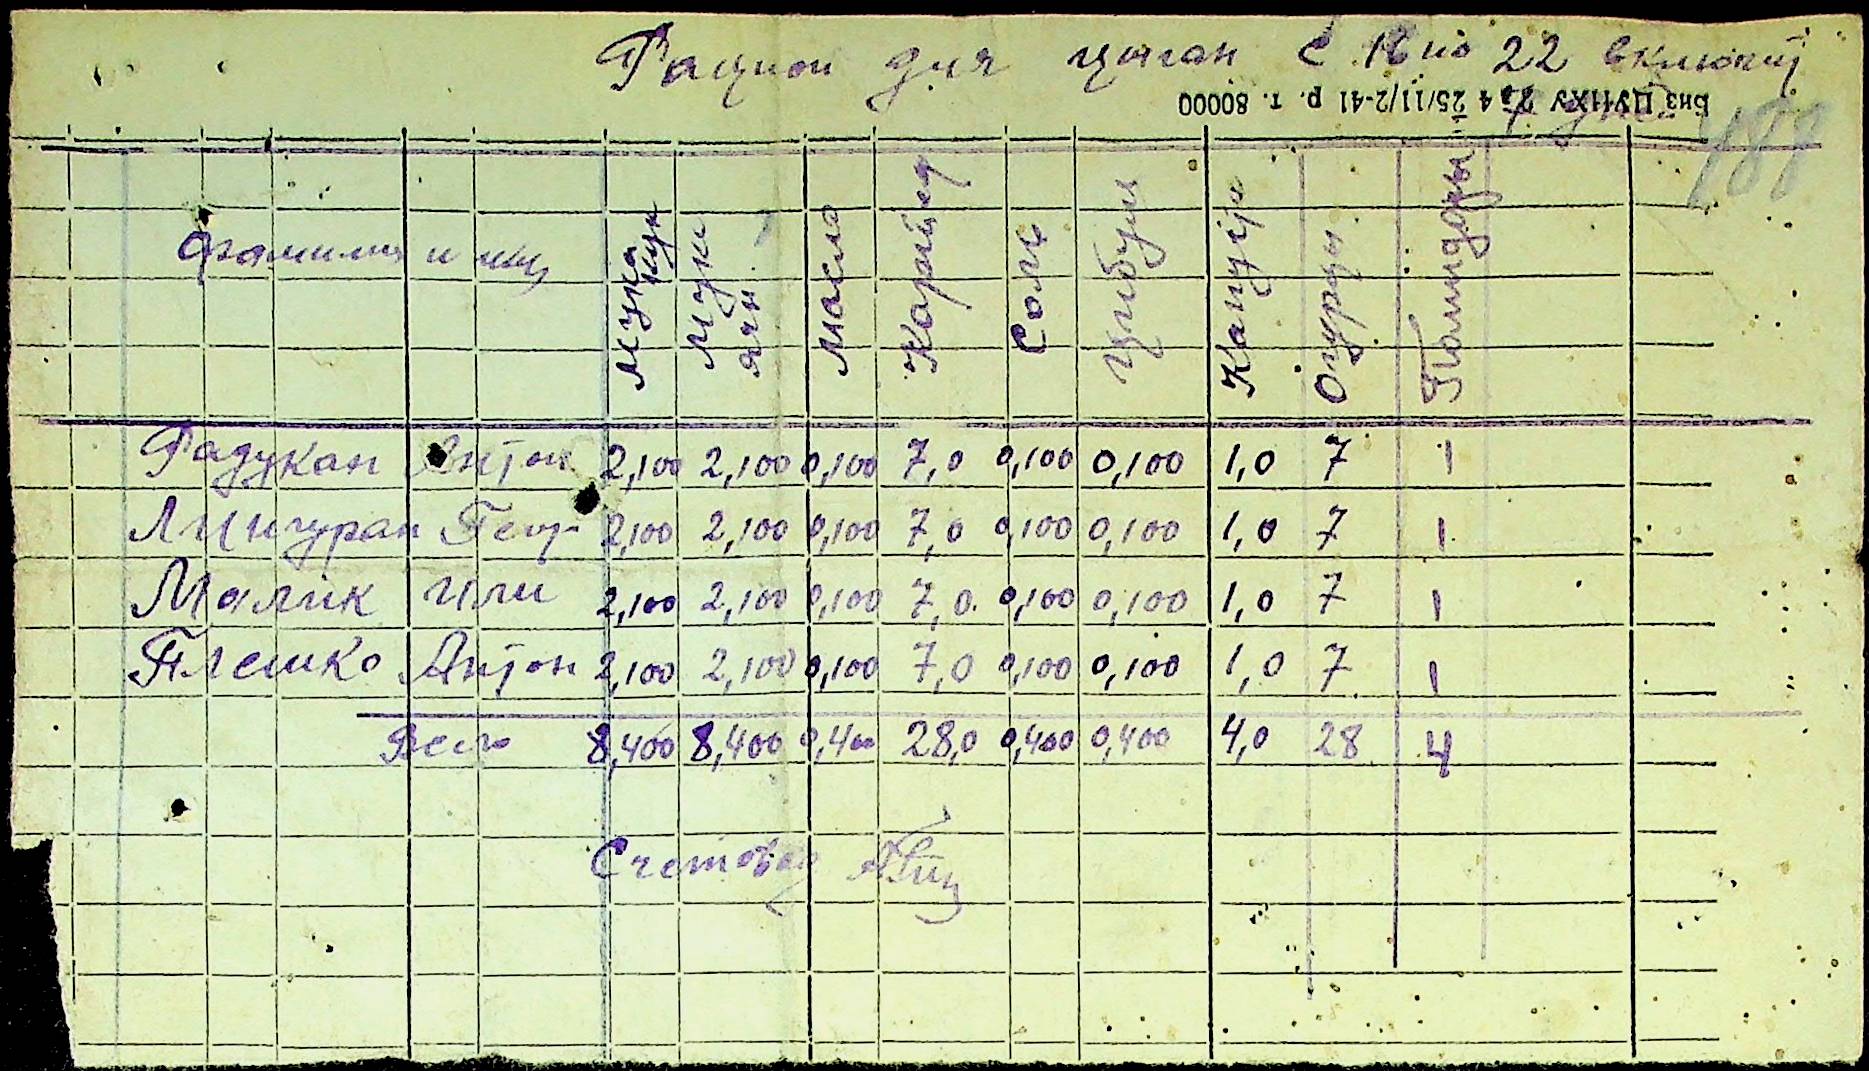 Рацион для цыган с 16 по 22 включит
Биз ЦУНХУ 4 25/11/2-41 р. т. 80000
7 дн.
188
Фамилия и имя Мука кук Муки ячн. Масло Картошка Соль Цыбуля Капуста Огурцы Помидоры
Радукан Антон 2,100 2,100 0,100 7,0 0,100 0,100 1,0 7 1
Лингуран Геор 2,100 2,100 0,100 7,0 0,100 0,100 1,0 7 1
Малик Или 2,100 2,100 0,100 7,0 0,100 0,100 1,0 7 1
Плешко Антон 2,100 2,100 0,100 7,0 0,100 0,100 1,0 7 1
Всего 8,400 8,400 0,400 28,0 0,400 0,400 4,0 28 4
Счетовод